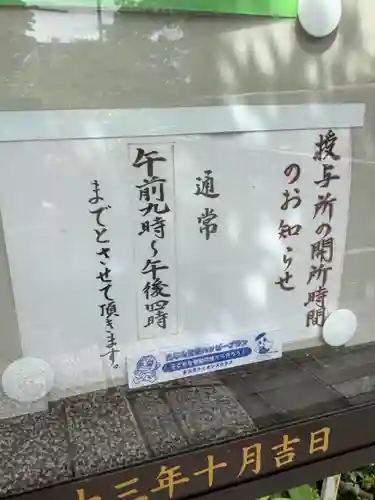 授与所の開所時間
のお知らせ
通常
午前九時～午後四時
までとさせて頂きます。
十三年十月吉日